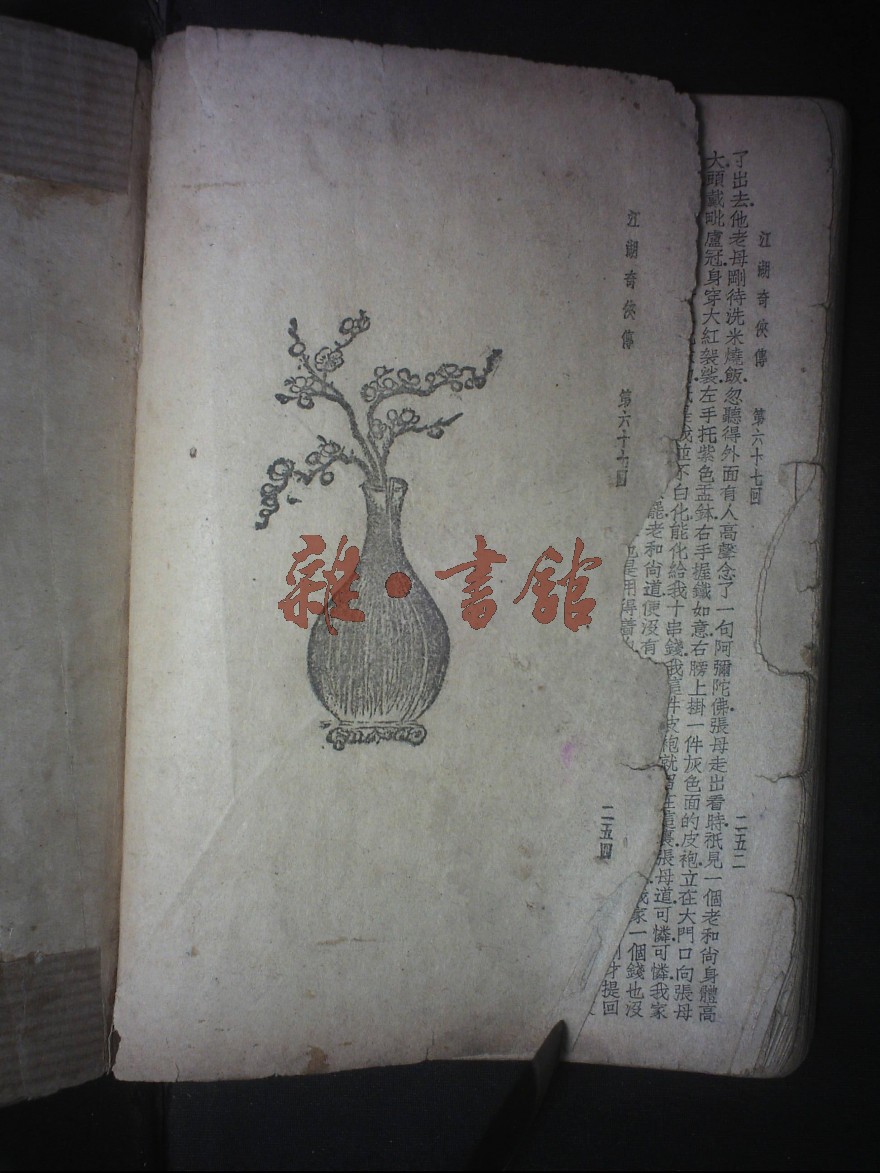 江湖奇俠傳 第六十七回 二五二
了出去.他老母剛待洗米燒飯.忽聽得外面有人高聲念了一句阿彌陀佛.張母走出看時.祇見一個老和尙身體高
大.頭戴毗盧冠.身穿大紅袈裟.左手托紫色盂鉢.右手握鐵如意.右膀上掛一件灰色面的皮袍.立在大門口向張母
並不白化.能化給我十串錢.我這件皮袍就留在這裏.張母道.可憐可憐.我家
罷.老和尙道.便沒有
也是用得着
家一個錢也沒
才提回
江湖奇俠傳 第六十七回 二五四
雜·書館